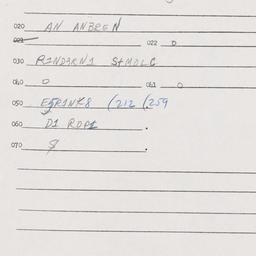 020 AN ANBREN
021 022 D
030 RINDARNI StMOLC
040 O 041 O
050 EGRINKS (212 (259
060 DI ROPI
070 9